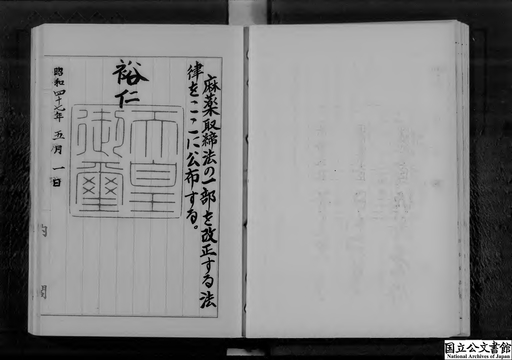 麻薬取締法の一部を改正する法
律をここに公布する。
裕仁
天皇
御璽
昭和四十七年 五月 一日
内閣
国立公文書館
National Archives of Japan